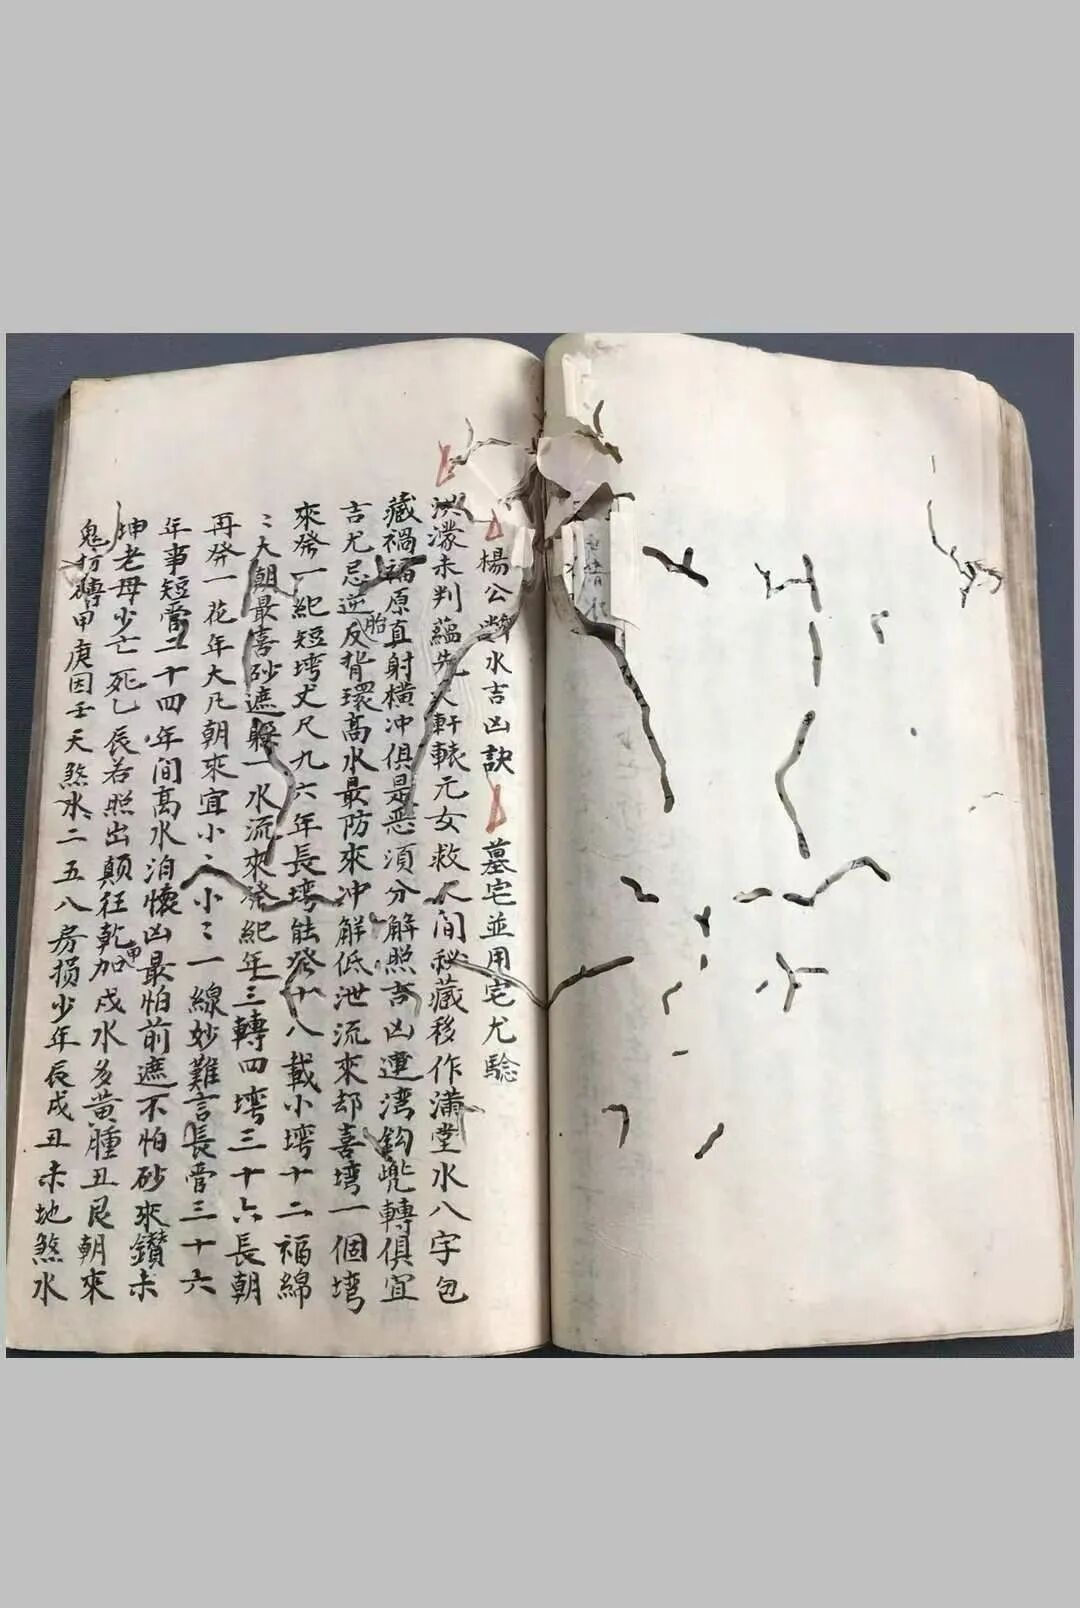 楊公斷水吉凶訣 墓宅並用宅尤驗
洪濛未判蘊先天軒轅元女救人間秘藏移作滿堂水八字包
藏禍福原直射橫冲俱是惡須分解照吉凶連湾鈎兠轉俱宜
吉尤忌逆反胎背環高水最防來冲解低泄流來却喜塆一個塆
來發一紀短塆丈尺九六年長塆能發十八載小塆十二福綿
〻大朝最喜砂遮躲一水流來發紀年三轉四塆三十六長朝
再發一花年大凡朝來宜小〻小〻一線妙難言長管三十六
年事短管二十四年間高水泊懷凶最怕前遮不怕砂來鑽未
坤老母少亡死乙辰若照出颠狂乾甲加戍水多黄腫丑艮朝來
鬼 甲庚因壬天煞水二五八房损少年辰戍丑未地煞水